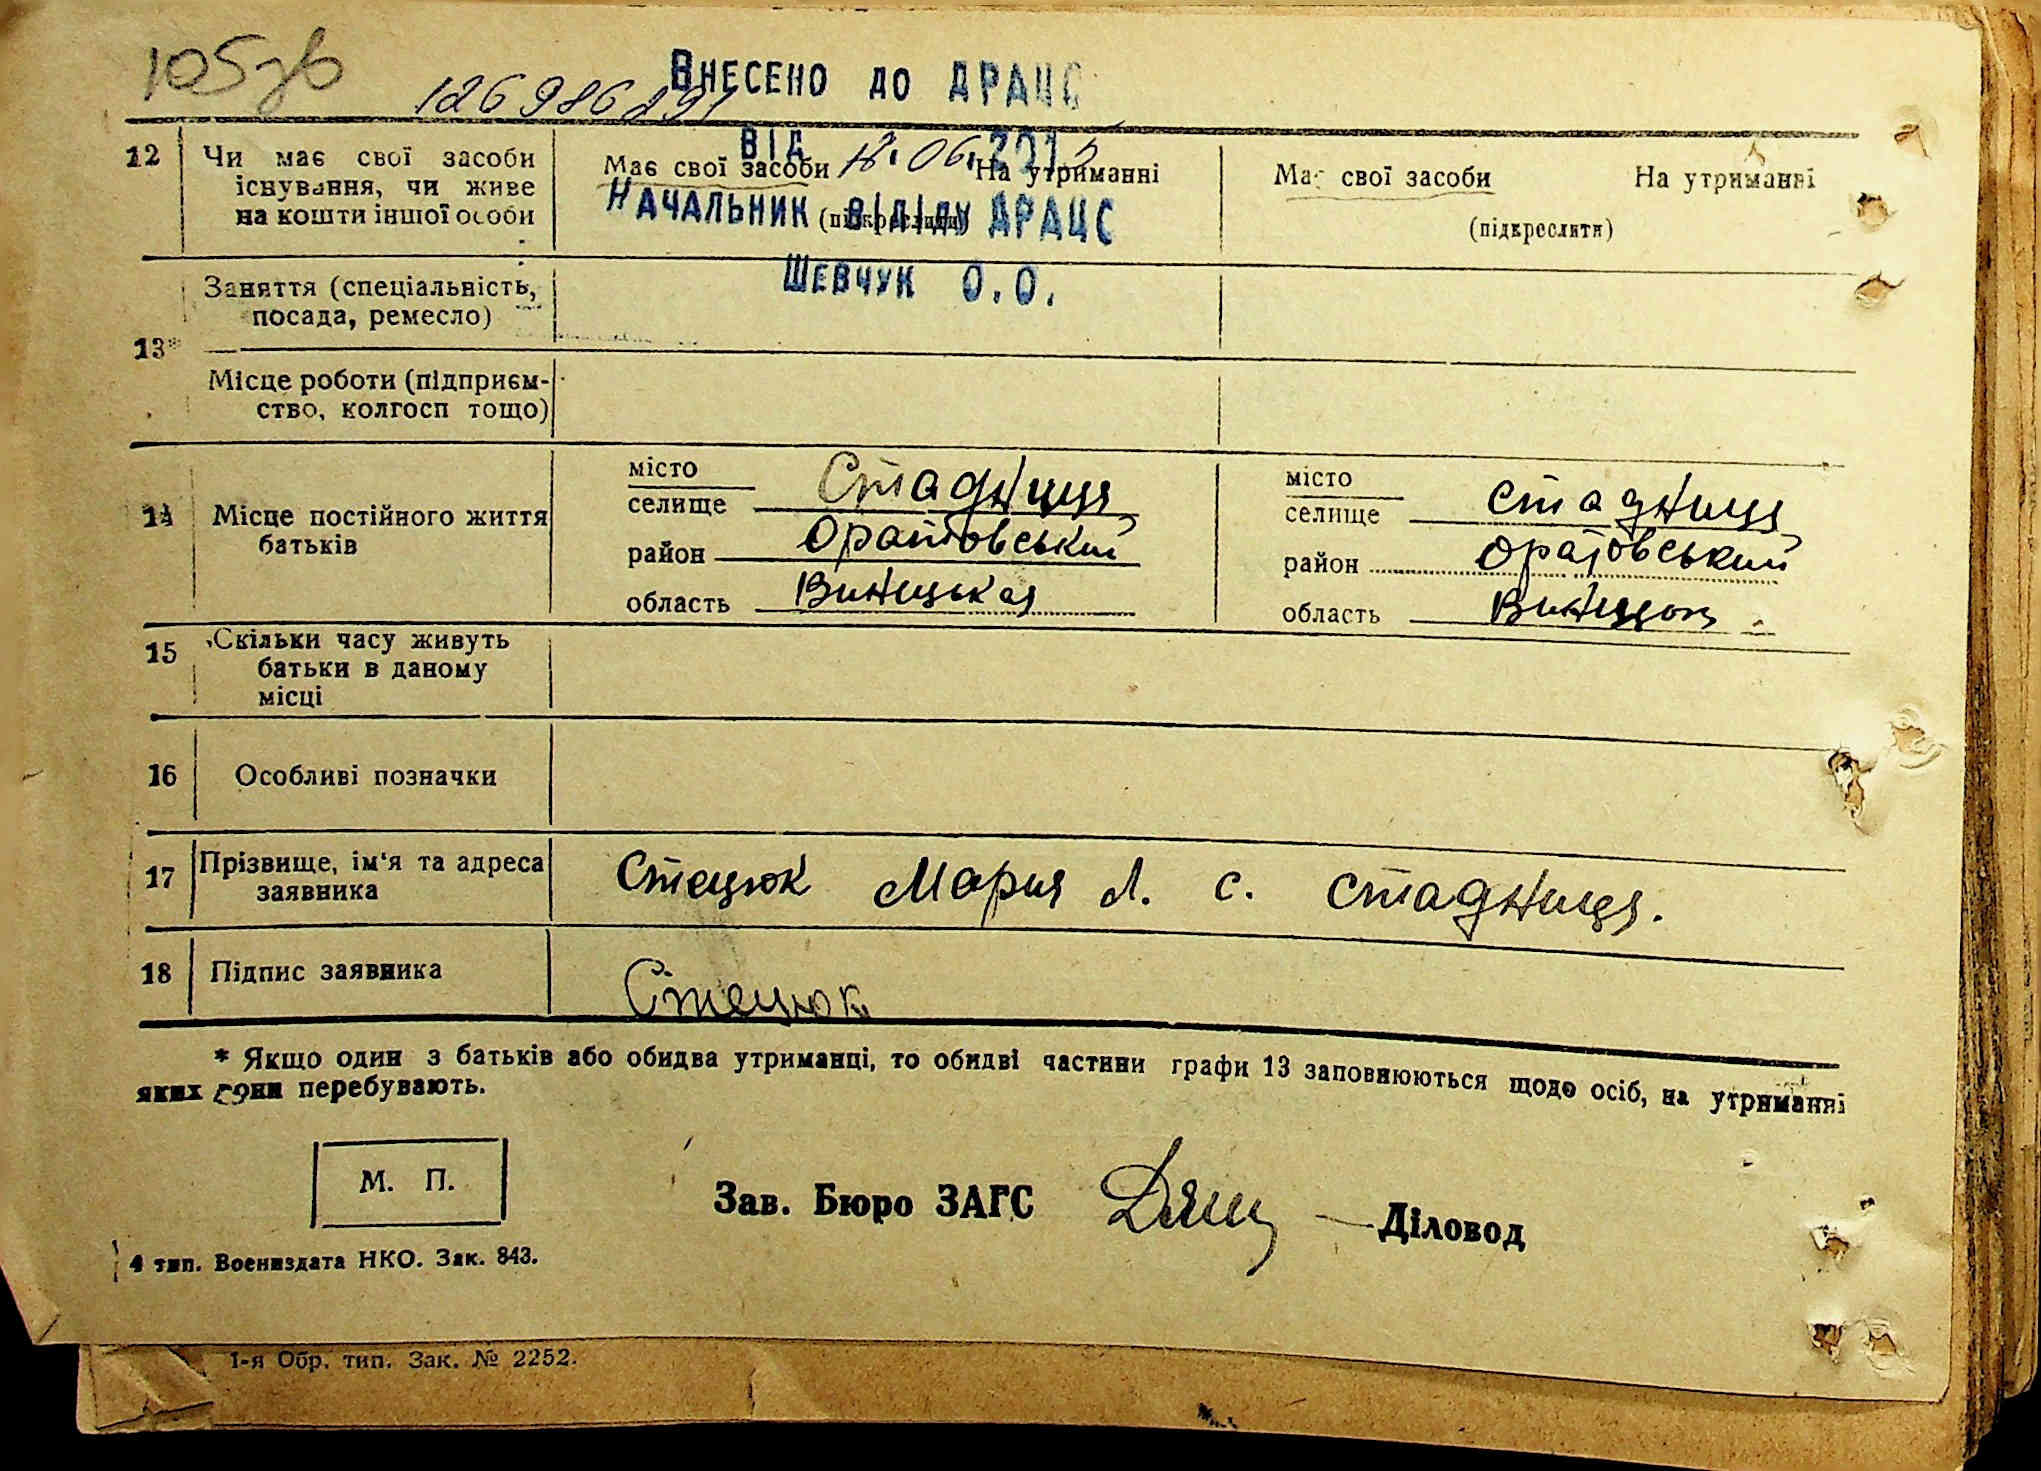 105зв
126986291
ВНЕСЕНО ДО ДРАЦС
ВІД 18.06.201
НАЧАЛЬНИК ВІДДІЛУ ДРАЦС
ШЕВЧУК О.О.
12 Чи має свої засоби
існування, чи живе
на кошти іншої особи
Має свої засоби На утриманні
(підкреслити)
Має свої засоби На утриманні
(підкреслити)
13* Заняття (спеціальність,
посада, ремесло)
Місце роботи (підприєм-
ство, колгосп тощо)
14 Місце постійного життя
батьків
місто
селище Стадниця
район Оратовський
область Виницькая
місто
селище Стадниця
район Оратовський
область
15 Скільки часу живуть
батьки в даному
місці
16 Особливі позначки
17 Прізвище, ім'я та адреса
заявника
Стецюк Мария Л. с. Стадниця.
18 Підпис заявника Стецюк
* Якщо один з батьків або обидва утриманці, то обидві частини графи 13 заповнюються щодо осіб, на утриманні
яких вони перебувають.
М. П.
Зав. Бюро ЗАГС Діловод
4 тип. Воениздата НКО. Зак. 843.
1-я Обр. тип. Зак. № 2252.